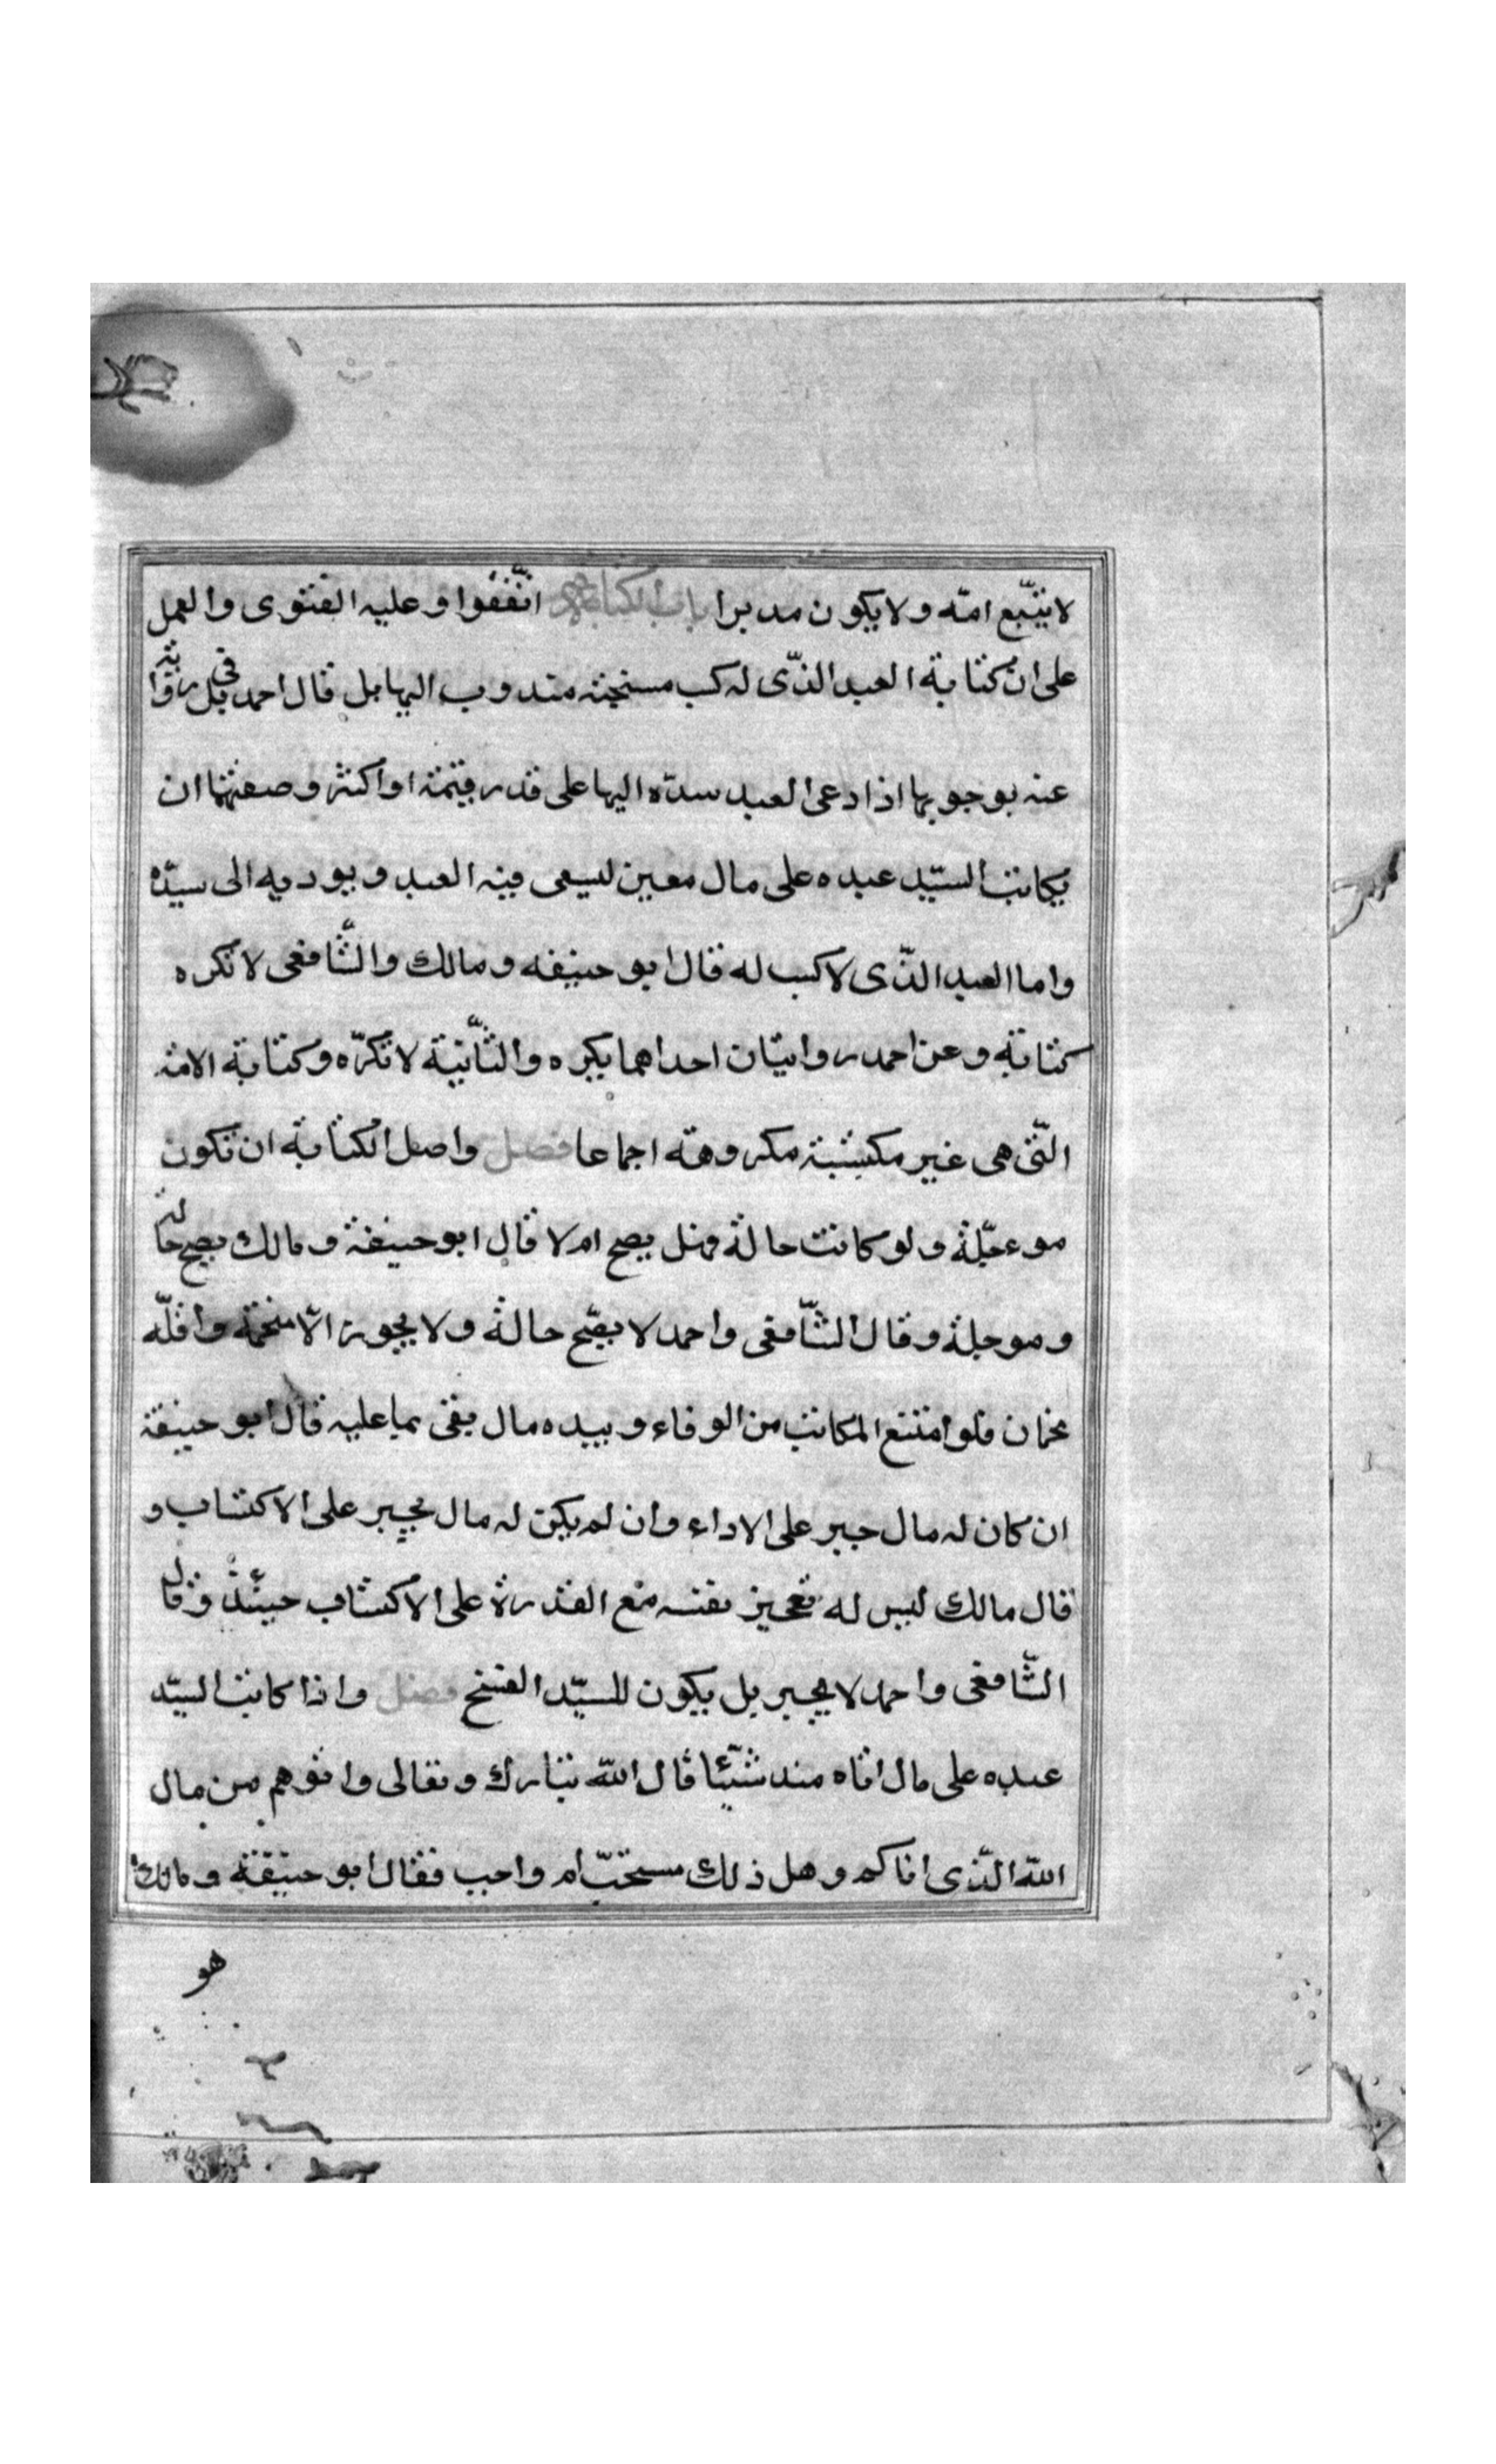 لا يتبع امّه ولا يكون مدبرا باب الكتابة اتّفقوا وعليه الفتوى والعمل
على ان كتابة العبد الذّى له كسب مستحبّة مندوب اليها بل قال احمد في رواية
عنه بوجوبها اذا دعى العبد سيّده اليها على قدر قيمته او اكثر وصفتها ان
يكاتب السيّد عبده على مال معين ليسعى فيه العبد ويوديه الى سيّده
واما العبد الذّى لا كسب له قال ابو حنيفه ومالك والشّافعى لا تكره
كتابة وعن احمد روايتان احداهما يكره والثّانية لا تكرّه وكتابة الامة
التّى هى غير مكتسبة مكروهة اجماعا فصل واصل الكتابة ان تكون
موءجّلة ولو كانت حالة فهل يصح ام لا قال ابو حنيفة ومالك يصح حالة
وموجلة وقال الشّافعى واحمد لا يصّح حالة ولا يجوز الّا منجمة واقلّه
نجمان فلو امتنع المكاتب من الوفاء وبيده مال يفى بما عليه قال ابو حنيفة
ان كان له مال جبر على الاداء وان لم يكن له مال يجبر على الاكتساب و
قال مالك ليس له تعجيز نفسه مع القدرة على الاكتساب حينئذ وقال
الشّافعى واحمد لا يجبر بل يكون للسيّد الفسخ فصل واذا كاتب السيّد
عبده على مال اتاه منه شيّئا قال اللّه تبارك وتعالى واتوهم من مال
اللّه الّذى اتاكم وهل ذلك مستحبّ ام واجب فقال ابو حنيفة ومالك
هو